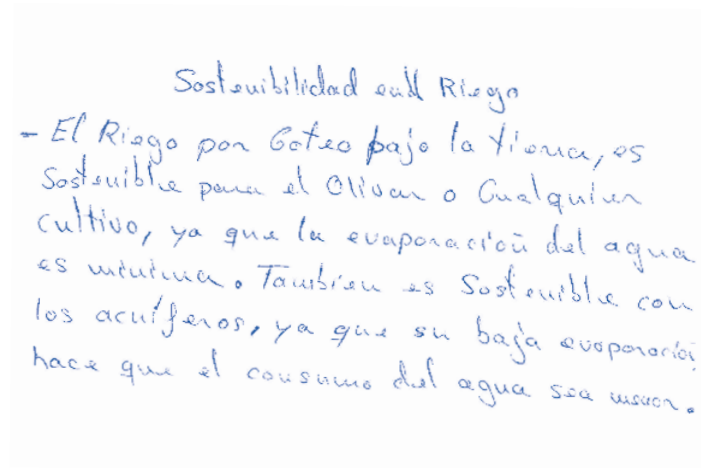 Sostenibilidad en el Riego
- El Riego por Goteo bajo la tierra, es
Sostenible para el Olivar o Cualquier
cultivo, ya que la evaporación del agua
es mínima. Tambien es Sostenible con
los acuíferos, ya que su baja evaporación
hace que el consumo del agua sea menor.